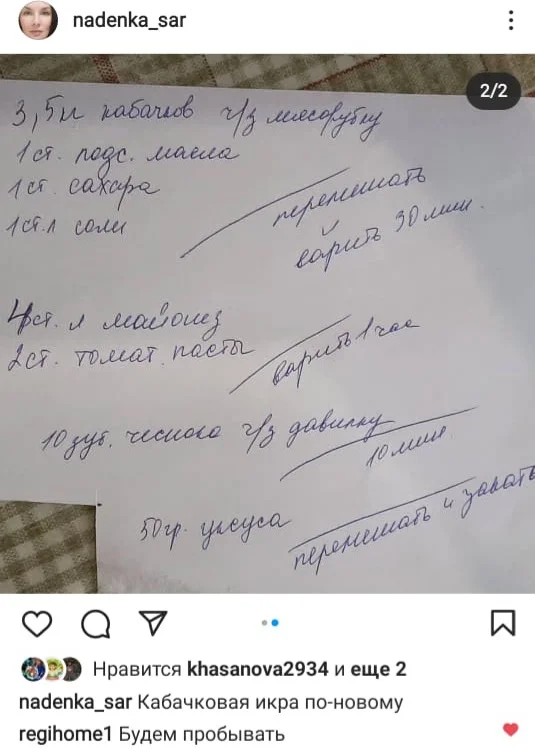 nadenka_sar
2/2
3,5кг кабачков ч/з мясорубку
1 ст. подс. масла
1 ст. сахара
1 ст.л соли
перемешать
варить 30 мин.
4 ст. л майонез
2 ст. томат. пасты
варить 1 час
10 зуб. чеснока ч/з давилку
10 мин.
50 гр. уксуса
перемешать и закать
Нравится khasanova2934 и еще 2
nadenka_sar Кабачковая икра по-новому
regihome1 Будем пробывать